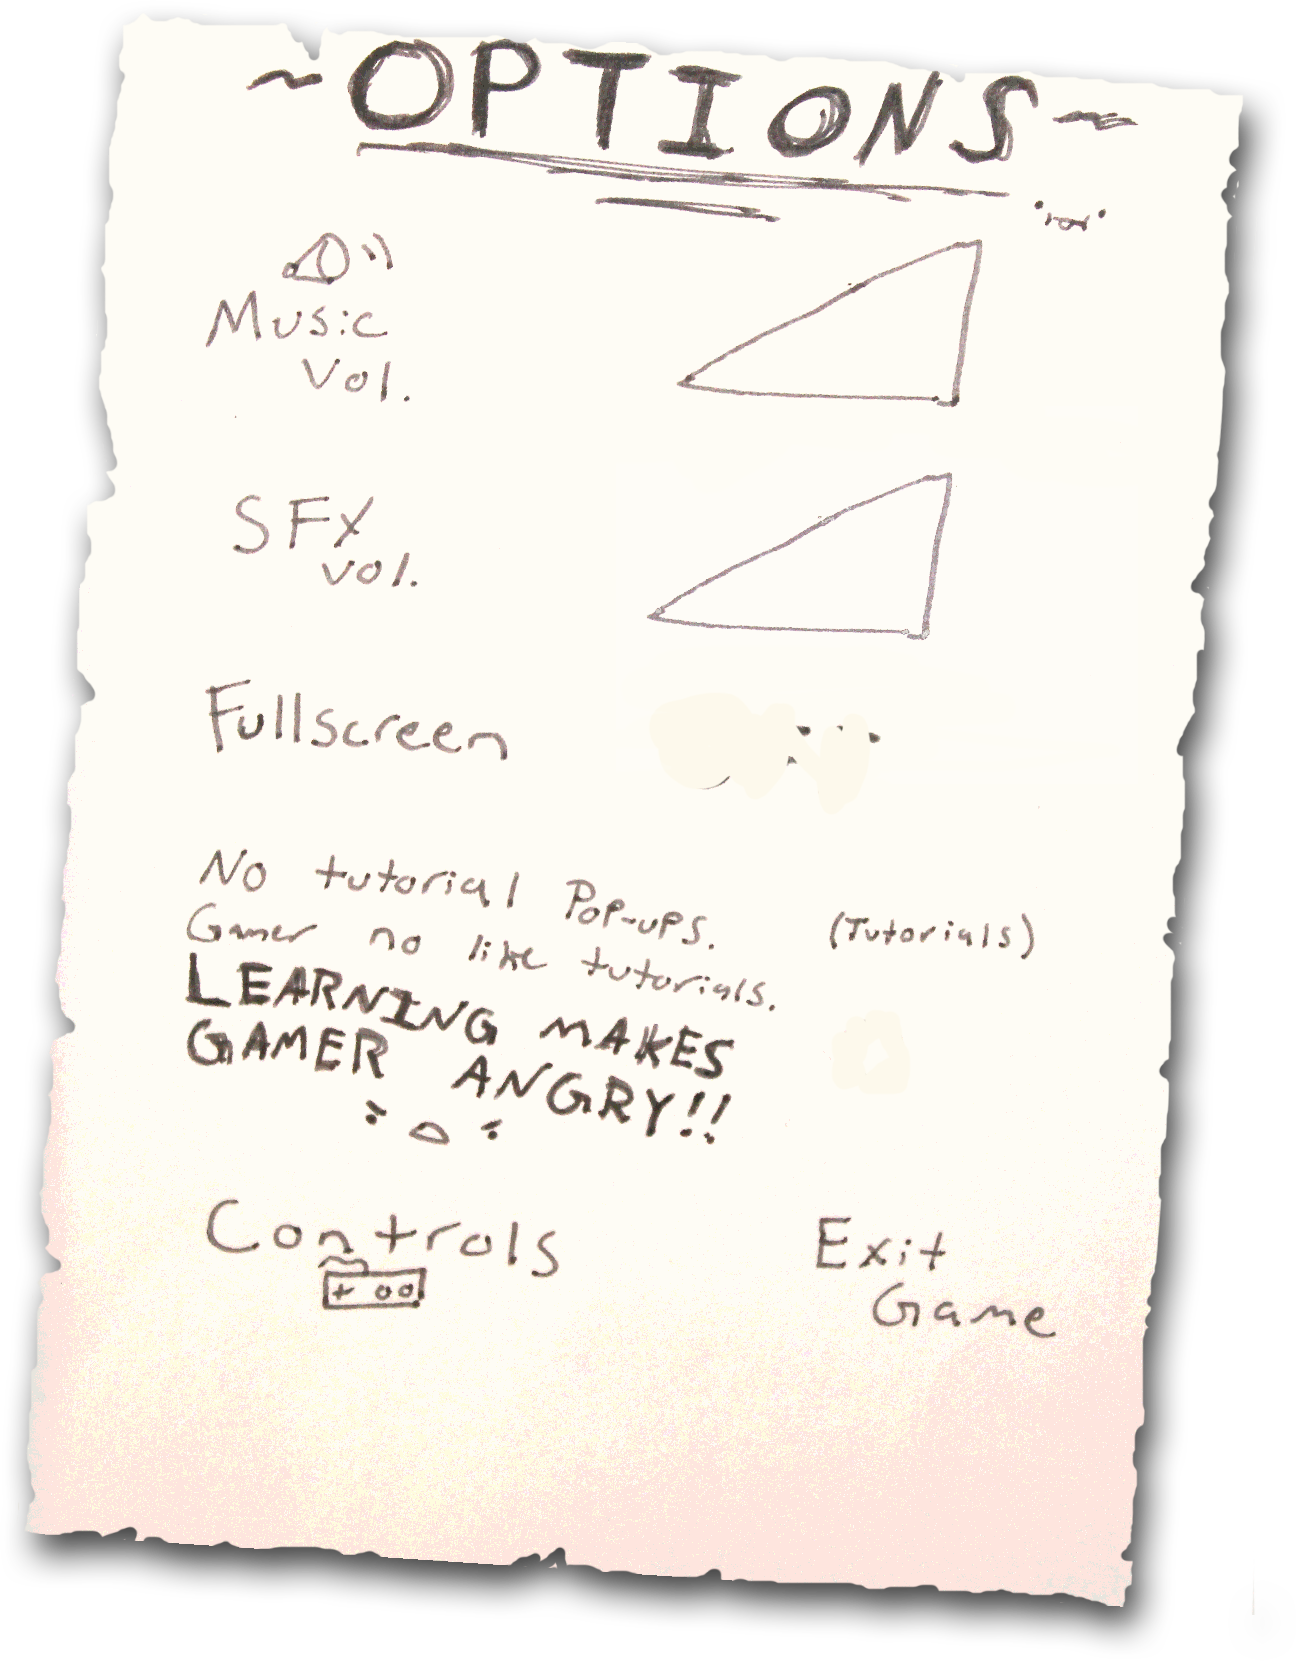 ~OPTIONS~
Music
Vol.
SFX
vol.
Fullscreen
No tutorial Pop-ups.
(Tutorials)
Gamer no like tutorials.
LEARNING MAKES
GAMER ANGRY!!
Controls
Exit
Game